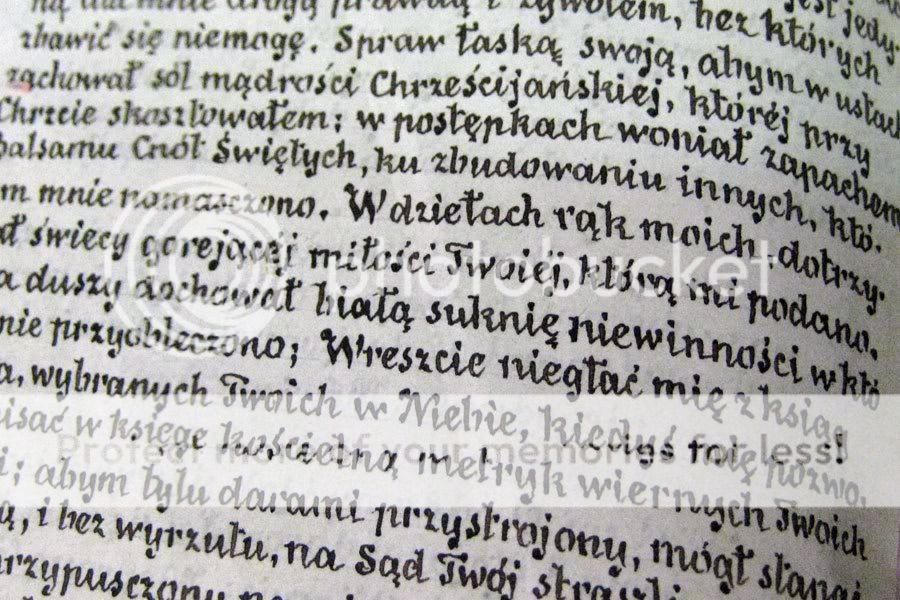 dał mnie drogą prawdą i żywotem, bez których jest jedy-
zbawić się niemogę. Spraw łaską swoją, abym w ustach
zachował sól mądrości Chrześcijańskiej, któréj przy
Chrzcie skosztowałem; w postępkach woniał zapachem
balsamu Cnót Świętych, ku zbudowaniu innych, któ-
m mnie nomaszczono. W dziełach rąk moich dotrzy-
ł świecy gorejącéj miłości Twoiéj, którą mi podano,
a duszy dochował białą suknię niewinności w któ
nie przyobleczono; Wreszcie niegłać mię z ksiąg
a, wybranych Twoich w Niebie, kiedyś
isać w księgę kościelną metryk wiernych Twoich
i; abym tylu darami przystrojony, mógł stanąć
ą, i bez wyrzutu, na Sąd Twój
rzypuszczony
photobucket
Protect more of your memories for less!